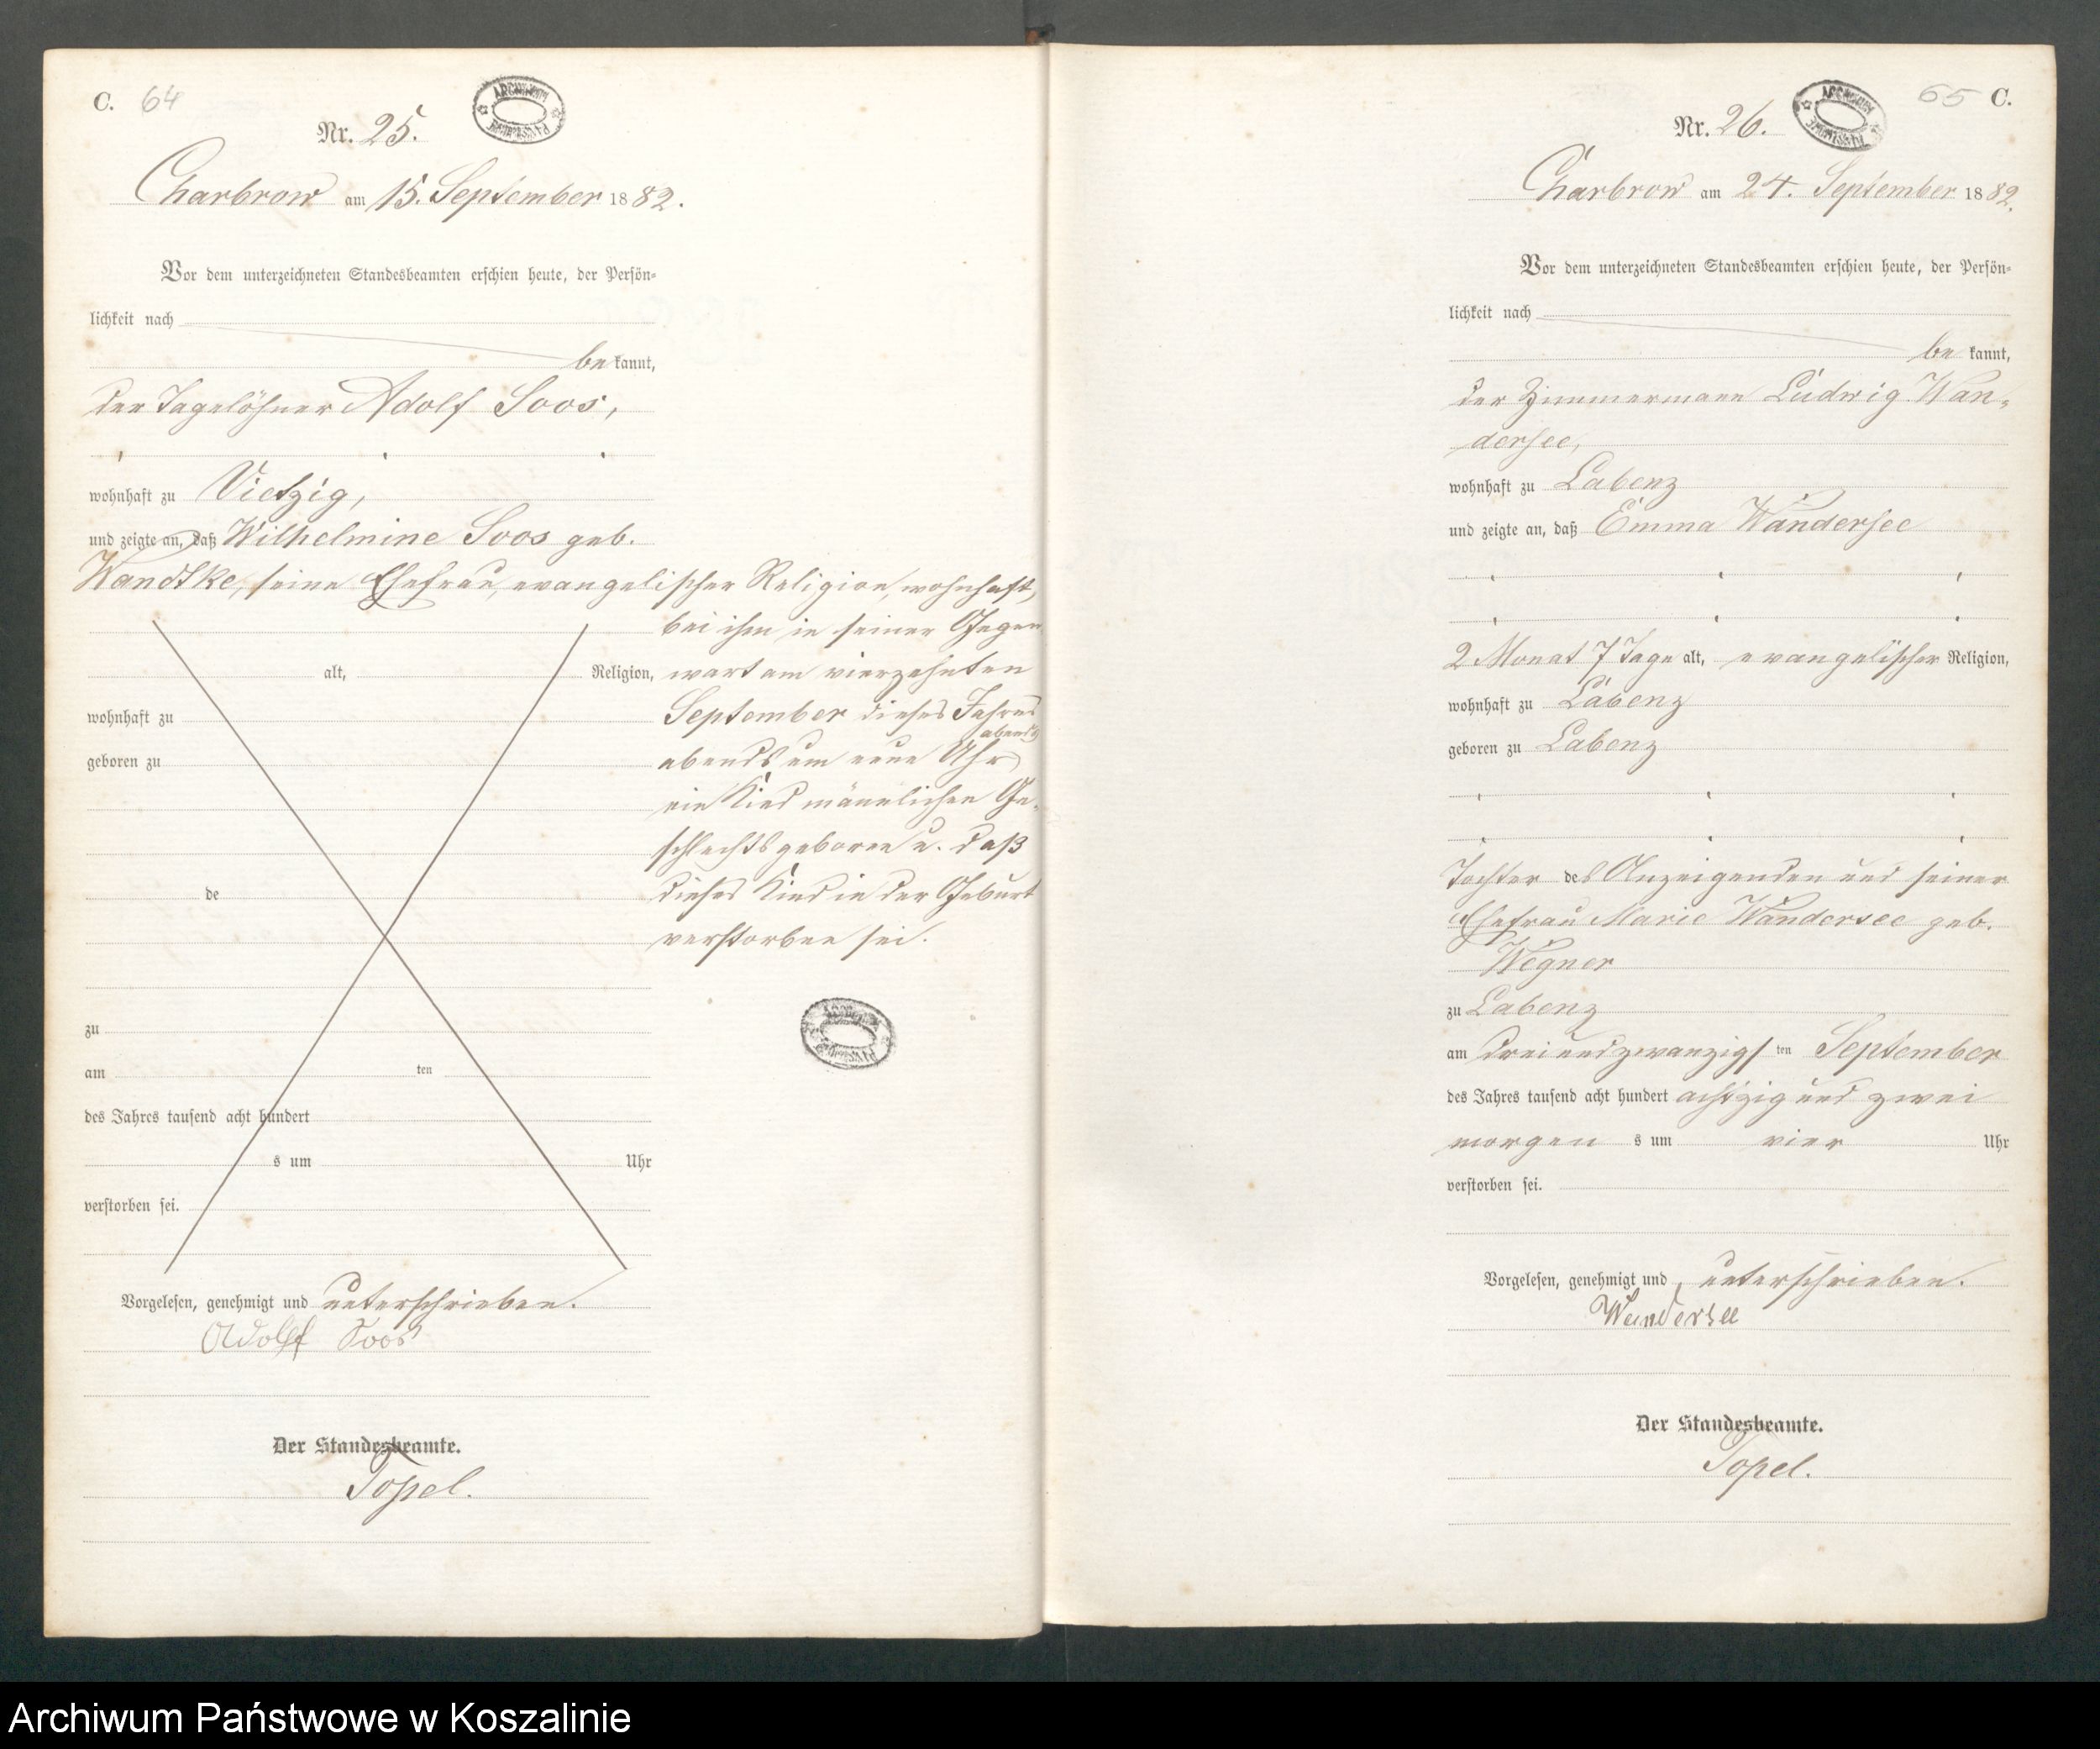 C. 64
Nr. 25.
Charbrow am 15. September 1882.
Vor dem unterzeichneten Standesbeamten erschien heute, der Persön-
lichkeit nach
be kannt,
der Tagelöhner Adolf Soos,
wohnhaft zu Vietzig,
und zeigte an, daß Wilhelmine Soos geb.
Wandtke, seine Ehefrau, evangelischer Religion, wohnhaft,
bei ihm in seiner Gegen
alt, Religion, wart am vierzehnten
wohnhaft zu September dieses Jahres
abends
geboren zu abends um neun Uhr
ein Kind männlichen Ge-
schlechts geboren u. daß
de dieses Kind in der Geburt
verstorben sei.
zu
am ten
des Jahres tausend acht hundert
s um Uhr
verstorben sei.
Vorgelesen, genehmigt und unterschrieben.
Adolf Soos
Der Standesbeamte.
Topel.
65 C.
Nr. 26.
Charbrow am 24. September 1882.
Vor dem unterzeichneten Standesbeamten erschien heute, der Persön-
lichkeit nach
be kannt,
der Zimmermann Ludwig Wan-
dersee,
wohnhaft zu Labenz
und zeigte an, daß Emma Wandersee
2 Monat 7 Tage alt, evangelischer Religion,
wohnhaft zu Labenz
geboren zu Labenz
Tochter des Anzeigenden und seiner
Ehefrau Marie Wandersee geb.
Wegner
zu Labenz
am dreiundzwanzigsten September
des Jahres tausend acht hundert achtzig und zwei
morgen s um vier Uhr
verstorben sei.
Vorgelesen, genehmigt und unterschrieben.
Wandersee
Der Standesbeamte.
Topel.
Archiwum Państwowe w Koszalinie